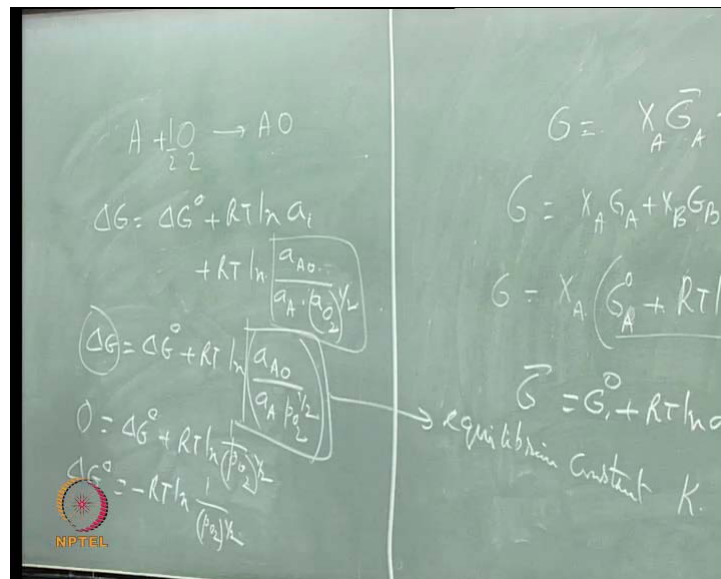 A + 1/2 O2 → AO
ΔG = ΔG° + RT ln ai
+ RT ln aAO / aA · (aO2)^1/2
ΔG = ΔG° + RT ln (aAO / aA pO2^1/2)
0 = ΔG° + RT ln 1/(pO2)^1/2
ΔG° = -RT ln 1/(pO2)^1/2
NPTEL
G = XA ḠA
G = XA GA + XB GB
G = XA (G°A + RT l
Ḡ = G°i + RT ln a
equilibrium constant K.